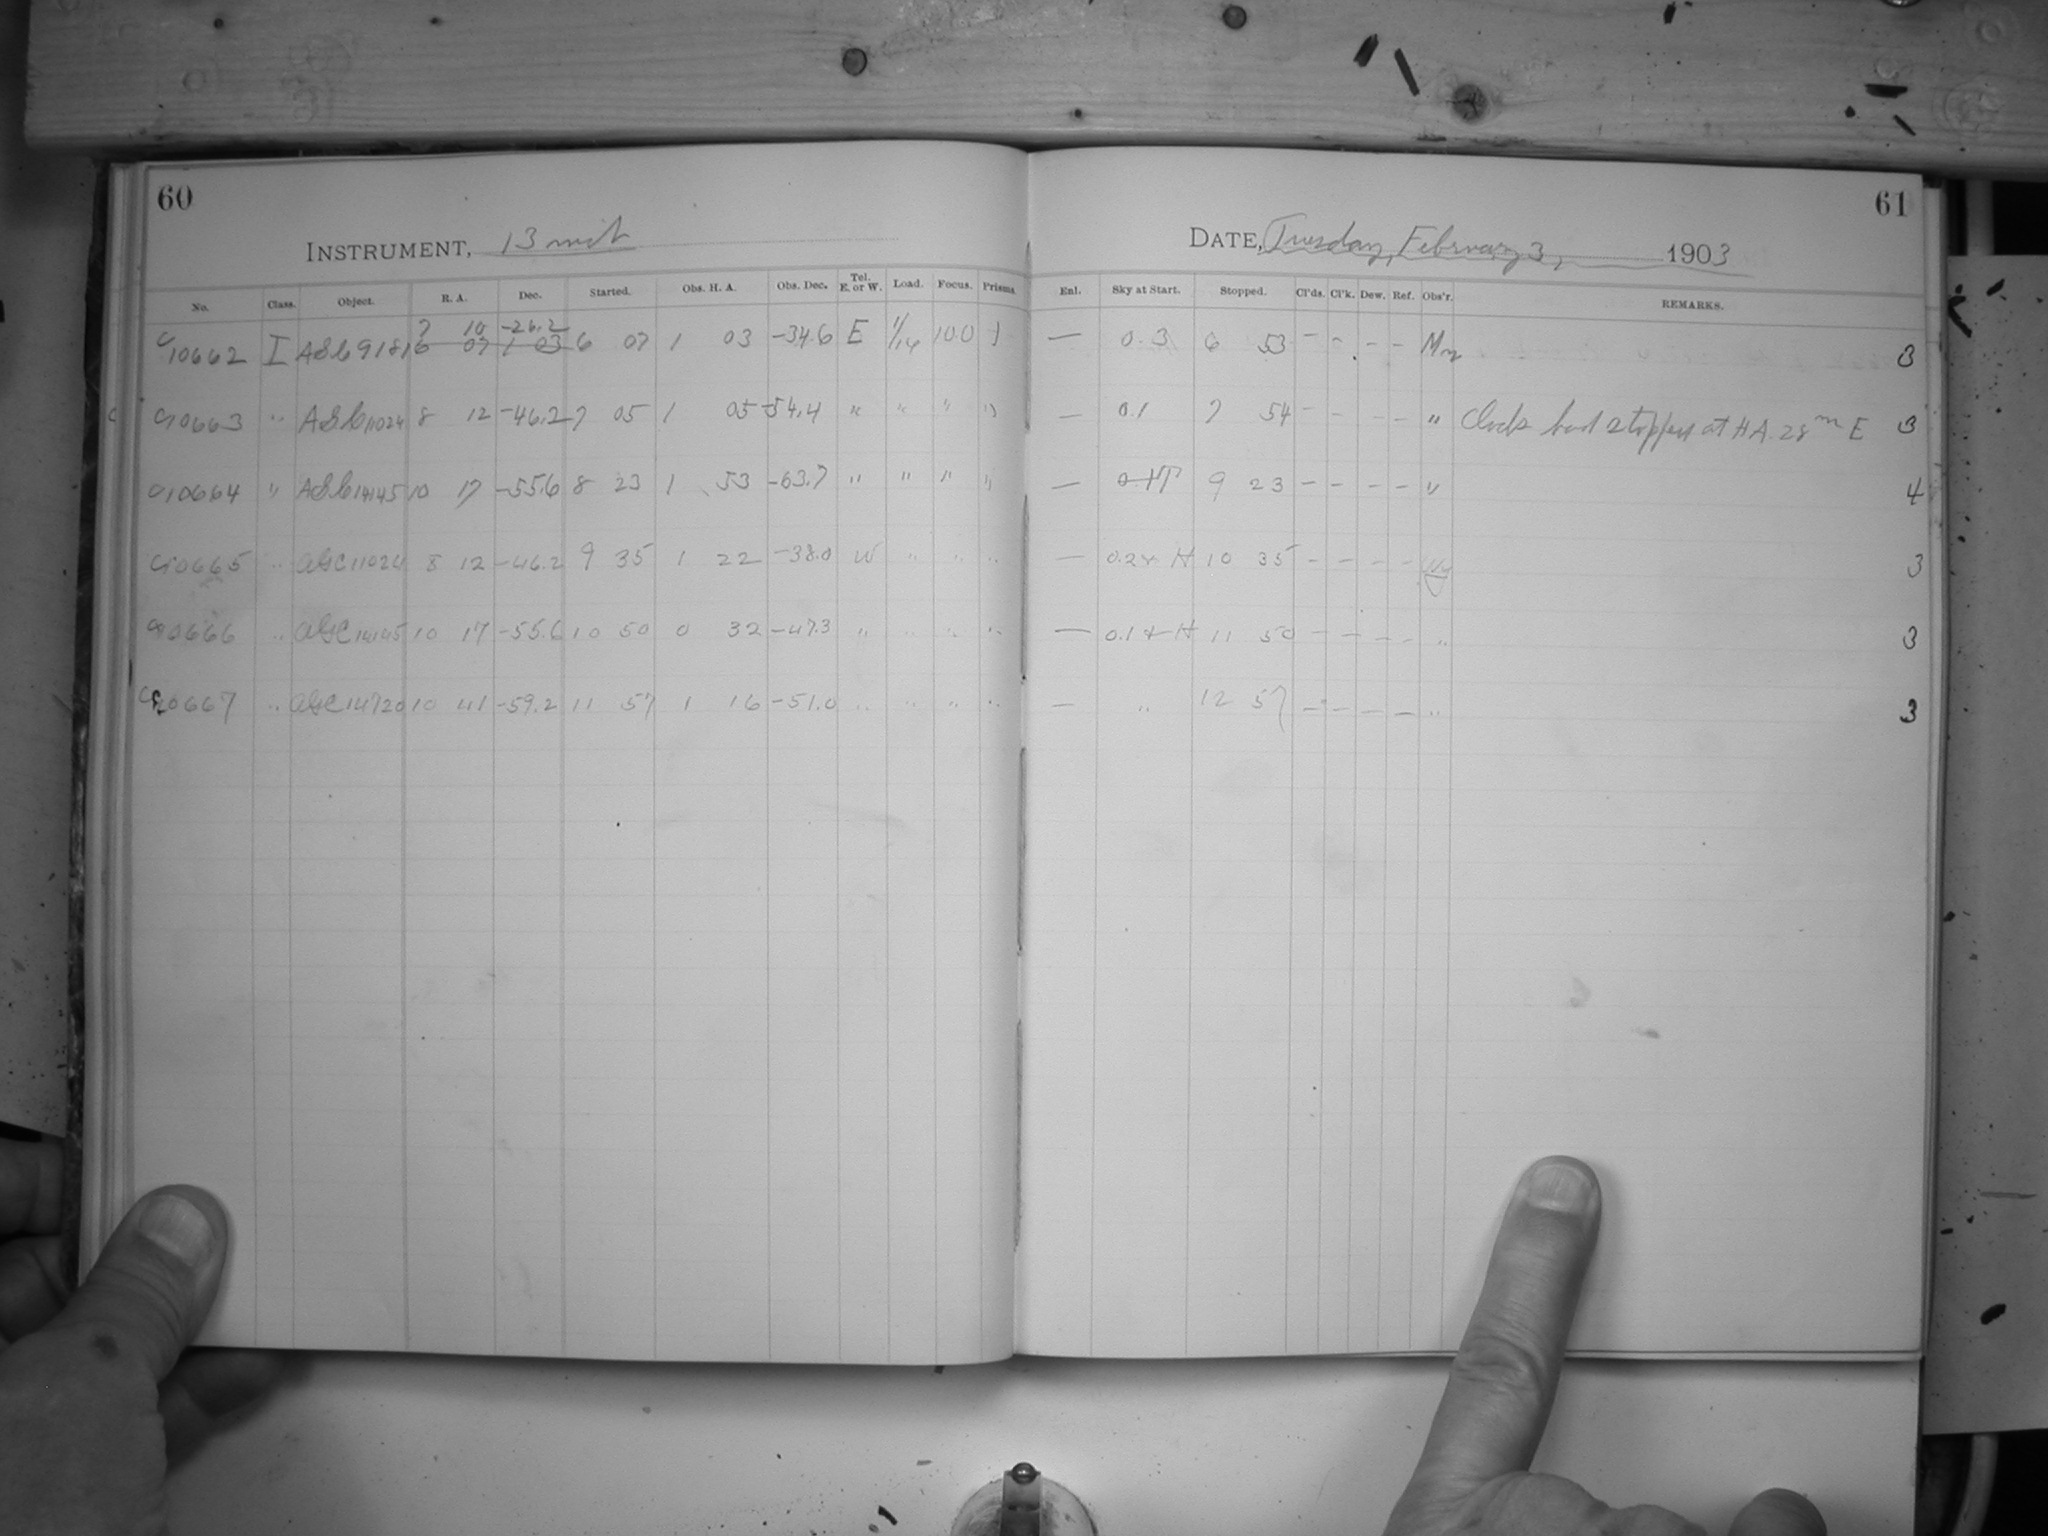 60
INSTRUMENT, 13 inch
No. Class. Object. R. A. Dec. Started. Obs. H. A. Obs. Dec. Tel. E. or W. Load. Focus. Prisms.
7 10 -26.2
C10662 I AGC 9181 6 07 1 03 6 07 1 03 -34.6 E 1/14 10.0 1
C10663 " AGC 11024 8 12 -46.2 7 05 1 05 -54.4 " " " "
C10664 " AGC 14145 10 17 -55.6 8 23 1 53 -63.7 " " " "
C10665 " AGC 11024 8 12 -46.2 9 35 1 22 -38.0 W " " "
C10666 " AGC 14145 10 17 -55.6 10 50 0 32 -47.3 " " " "
C10667 " AGC 14720 10 41 -59.2 11 57 1 16 -51.0 " " " "
61
DATE, Tuesday, February 3, 1903
Enl. Sky at Start. Stopped. Cl'ds. Cl'k. Dew. Ref. Obs'r. REMARKS.
— 0.3 6 53 - - - - 3
— 0.1 7 54 - - - - " Clock had stopped at H A. 28m E 3
— 9 23 - - - - " 4
— 0.2 + H 10 35 - - - - 3
— 0.1 + H 11 50 - - - - " 3
— " 12 57 - - - - " 3